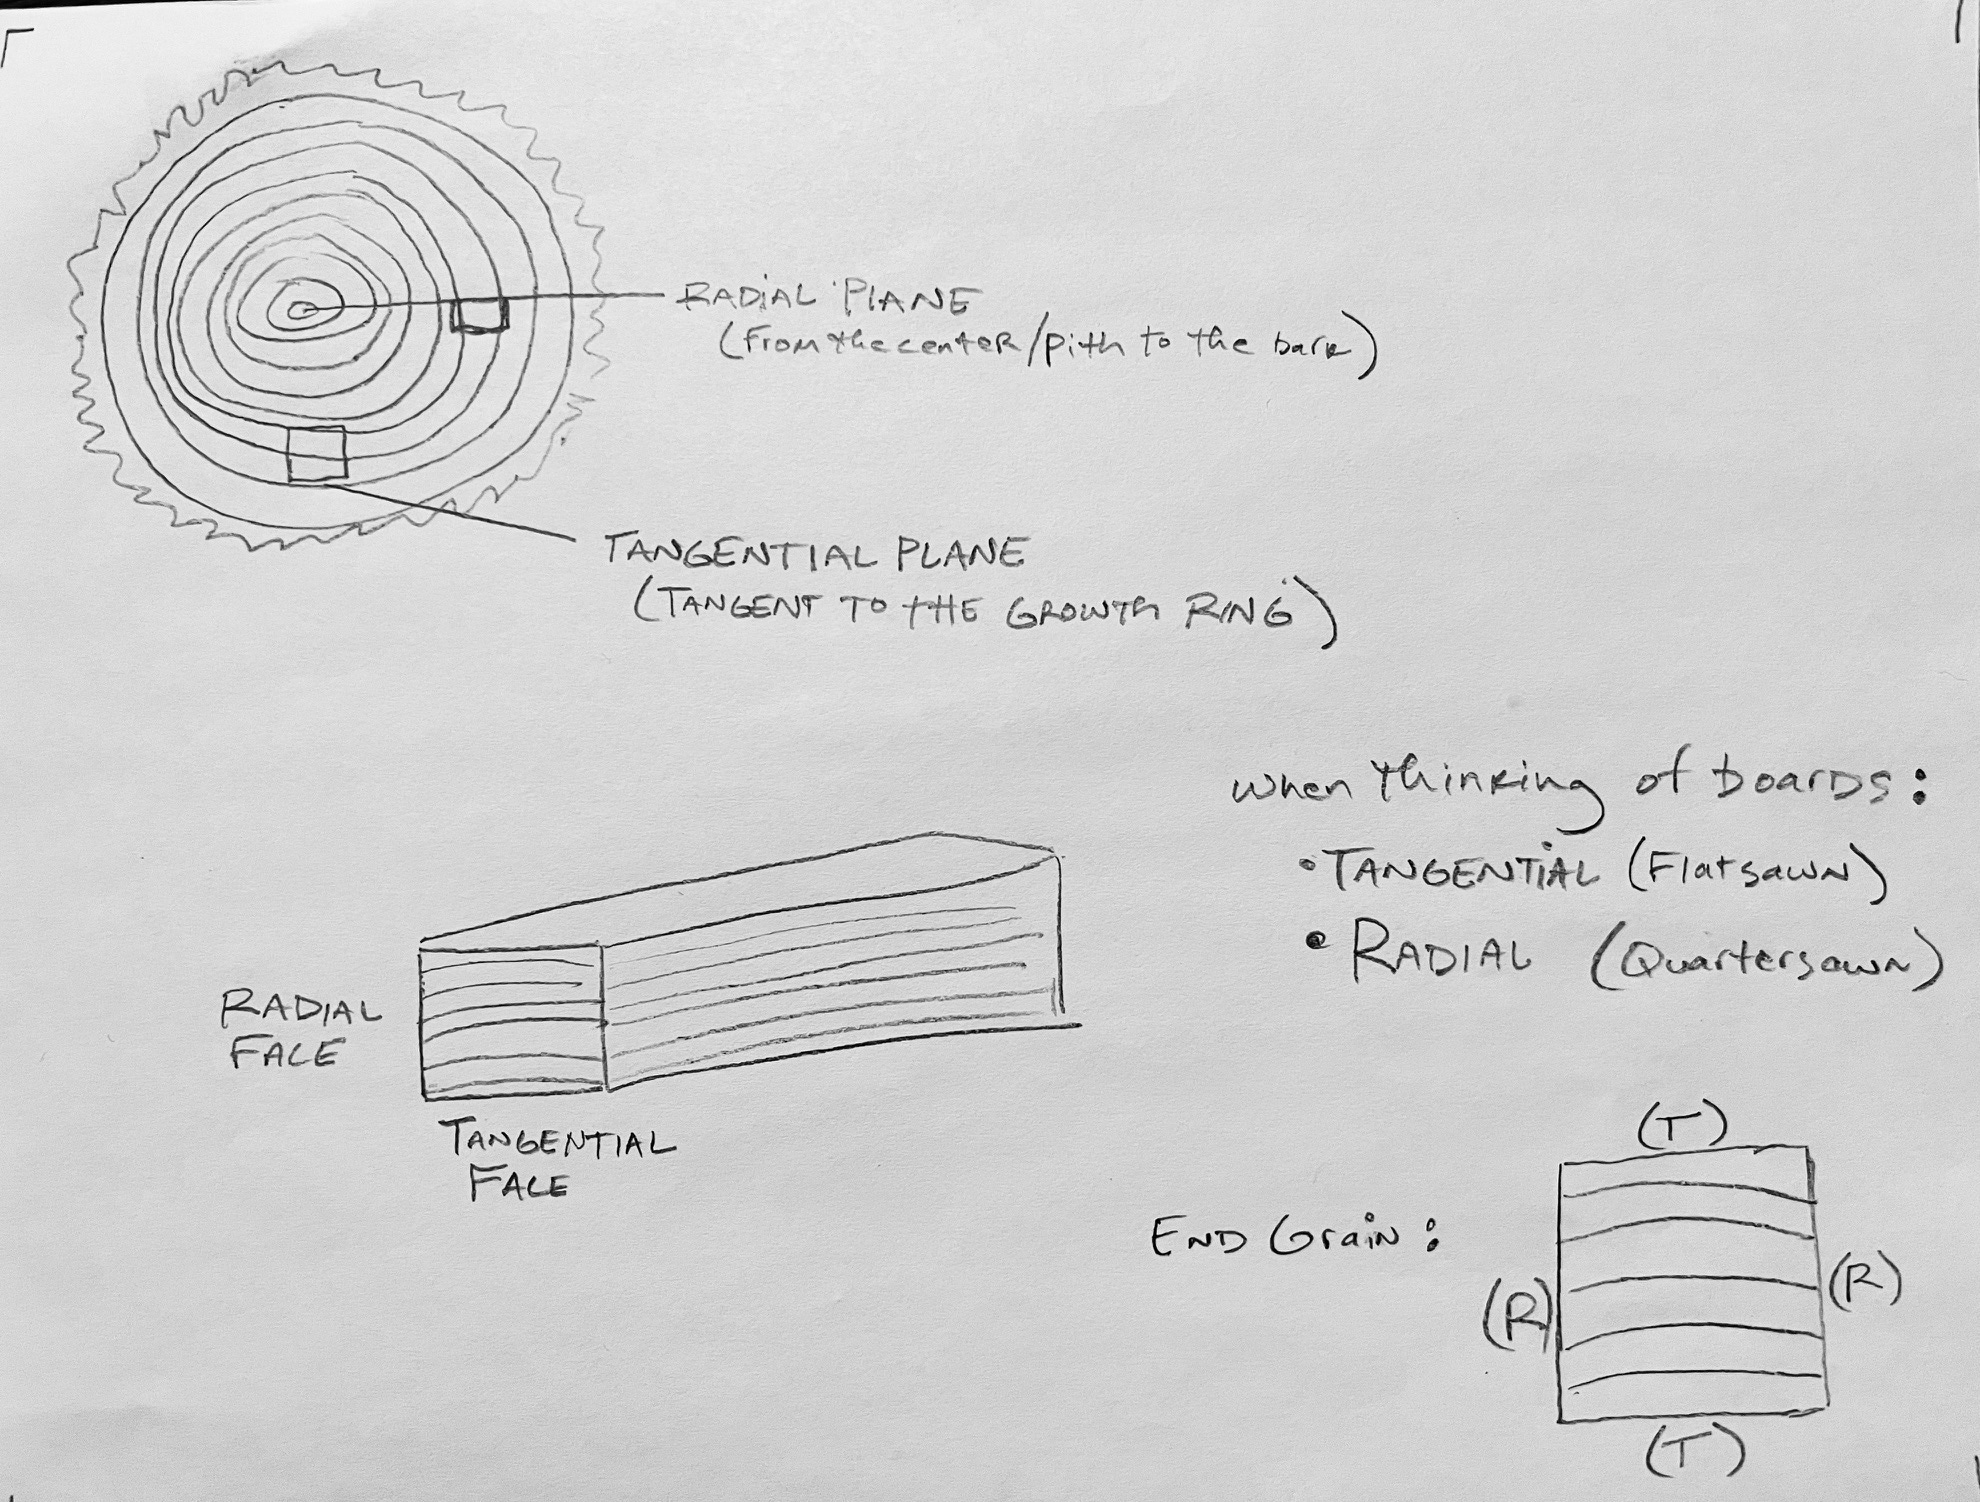 RADIAL PLANE
(From the center/pith to the bark)
TANGENTIAL PLANE
(TANGENT TO THE GROWTH RING)
when thinking of boards:
• TANGENTIAL (Flatsawn)
• RADIAL (Quartersawn)
RADIAL
FACE
TANGENTIAL
FACE
END Grain:
(T)
(R)
(R)
(T)